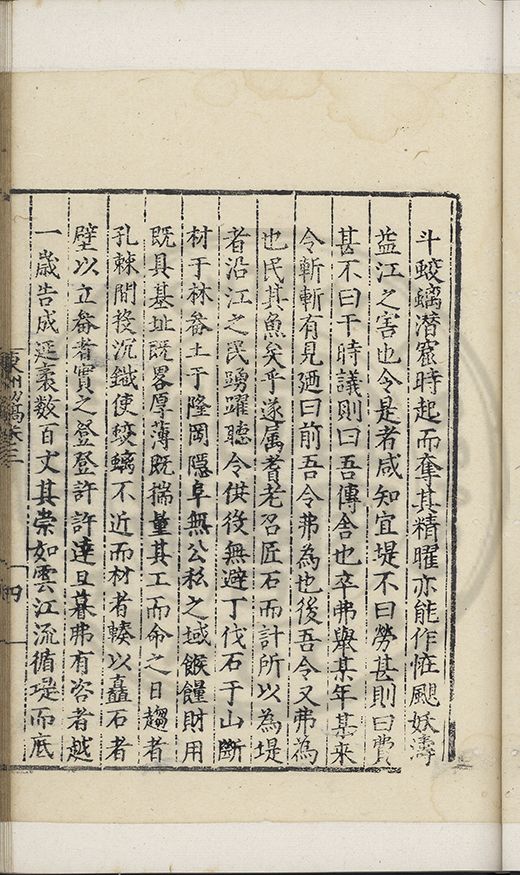 斗蛟螭潜窟時起而奪其精曜亦能作恠颶妖濤
葢江之害也令是者咸知宜堤不曰勞甚則曰費
甚不曰干時議則曰吾傳舎也卒弗舉某年某来
令斬斬有見廼曰前吾令弗為也後吾令又弗為
也民其魚矣乎遂属耆老召匠石而計所以為堤
者沿江之民踴躍聽令供役無避丁伐石于山斷
材于林畚土于隆岡隠阜無公私之域餱饉財用
既具基址既畧厚薄既揣量其工而命之日趨者
孔棘間投沉鐡使蛟螭不近而材者輳以矗石者
壁以立畚者實之登登許許達旦暮弗有咨者越
一歳告成延袤数百丈其崇如雲江流循堤而底
東州初稿卷三
四